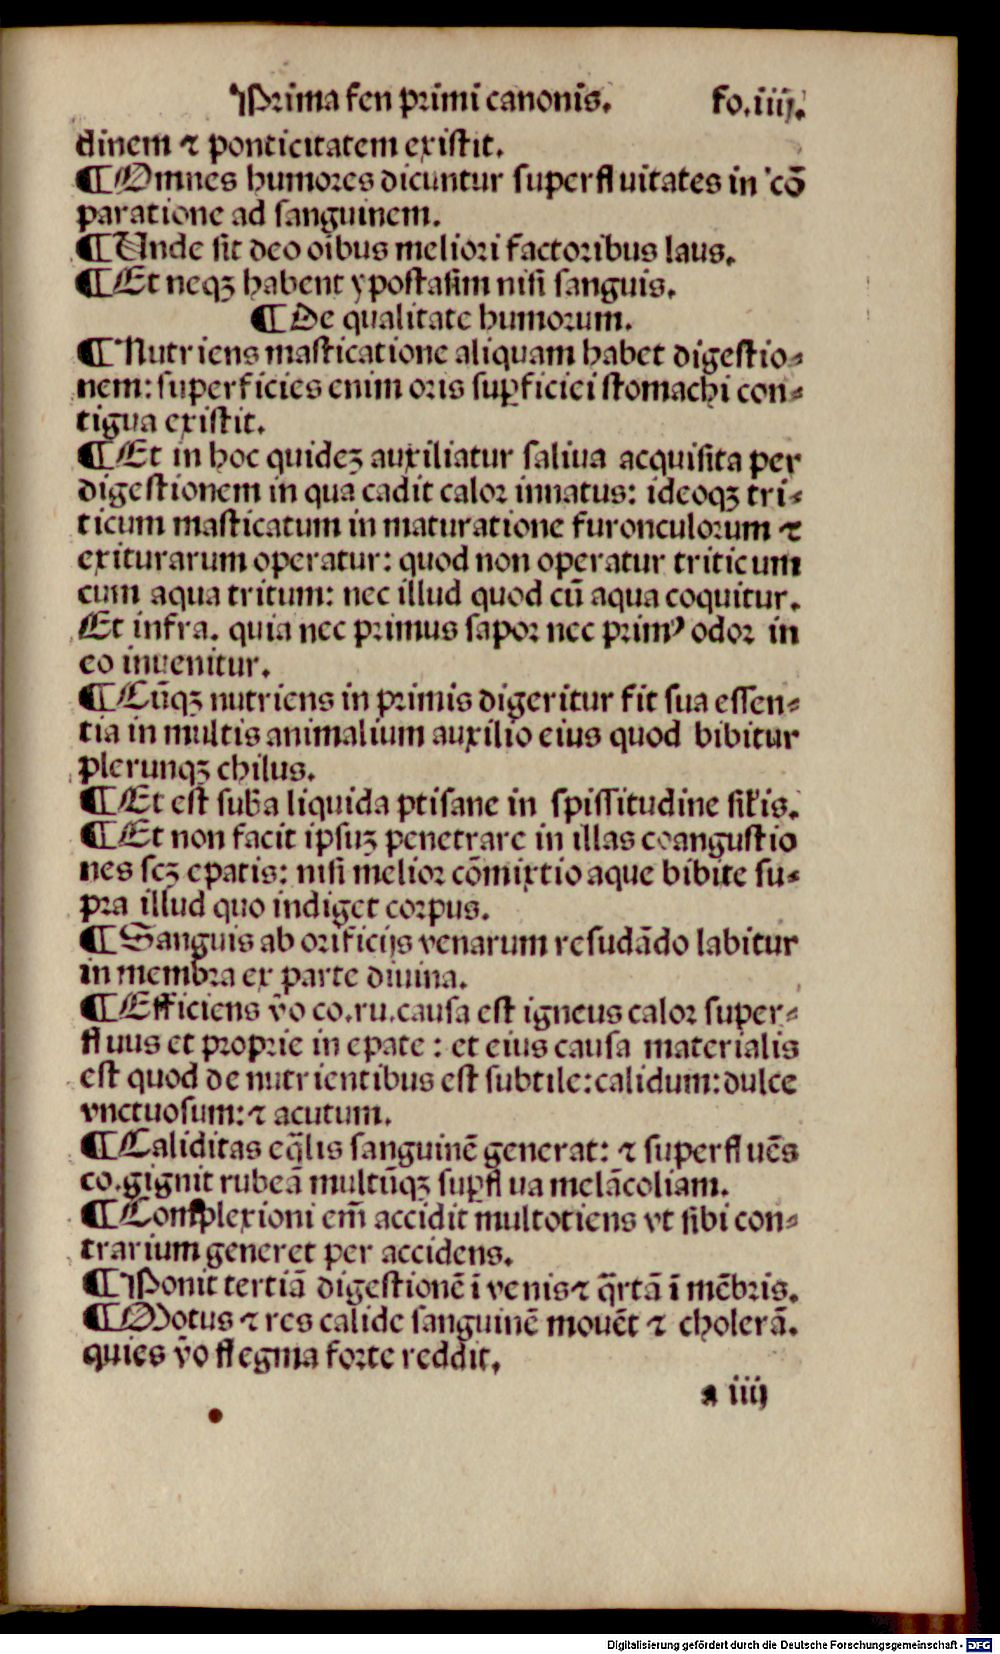 Prima fen primi canonis. fo.iiij.
dinem ⁊ ponticitatem existit.
¶ Omnes humores dicuntur superfluitates in cõ
paratione ad sanguinem.
¶ Unde sit deo oibus meliori factoribus laus.
¶ Et neqꝫ habent ypostasim nisi sanguis.
¶ De qualitate humorum.
¶ Nutriens masticatione aliquam habet digestio⸗
nem: superficies enim oris suꝑficiei stomachi con⸗
tigua existit.
¶ Et in hoc quideꝫ auxiliatur saliua acquisita per
digestionem in qua cadit calor innatus: ideoqꝫ tri⸗
ticum masticatum in maturatione furonculorum ⁊
exiturarum operatur: quod non operatur triticum
cum aqua tritum: nec illud quod cū aqua coquitur.
Et infra. quia nec primus sapor nec primꝰ odor in
eo inuenitur.
¶ Cūqꝫ nutriens in primis digeritur fit sua essen⸗
tia in multis animalium auxilio eius quod bibitur
plerunqꝫ chilus.
¶ Et est suba liquida ptisane in spissitudine silis.
¶ Et non facit ipsuꝫ penetrare in illas coangustio
nes scꝫ epatis: nisi melior cõmixtio aque bibite su⸗
pra illud quo indiget corpus.
¶ Sanguis ab orificijs venarum resudãdo labitur
in membra ex parte diuina.
¶ Efficiens ṽo co.ru.causa est igneus calor super⸗
fluus et proprie in epate : et eius causa materialis
est quod de nutrientibus est subtile:calidum:dulce
vnctuosum:⁊ acutum.
¶ Caliditas eq̃lis sanguinẽ generat: ⁊ superfluẽs
co.gignit rubeã multūqꝫ suꝑflua melãcoliam.
¶ Complexioni em̃ accidit multotiens vt sibi con⸗
trarium generet per accidens.
¶ Ponit tertiã digestionẽ ĩ venis⁊ q̃rtã ĩ mẽbris.
¶ Motus ⁊ res calide sanguinẽ mouẽt ⁊ cholerã.
quies ṽo flegma forte reddit.
a iiij
Digitalisierung gefördert durch die Deutsche Forschungsgemeinschaft - DFG